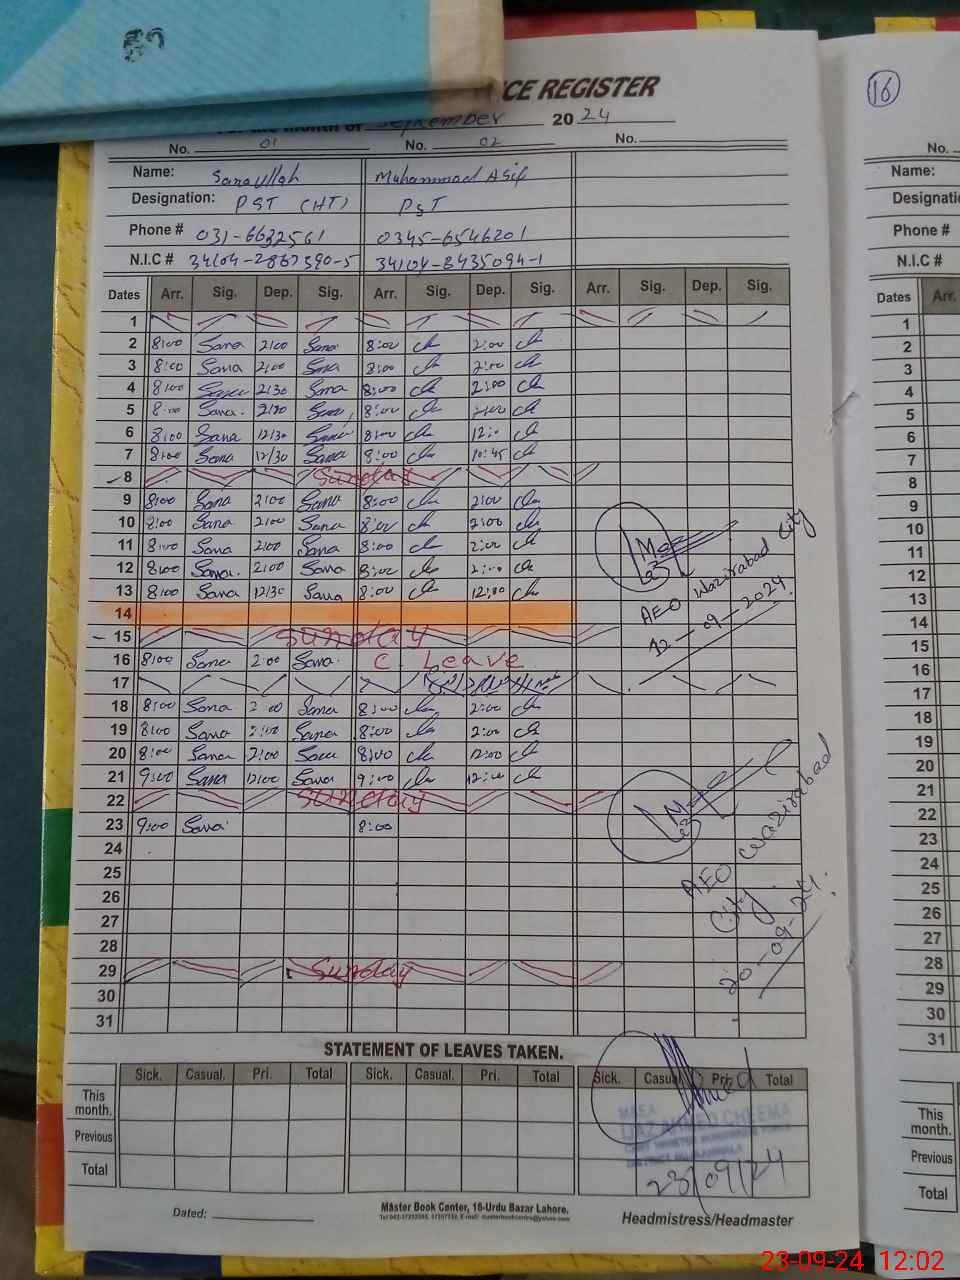 CE REGISTER
September 20 24
No. 01 No. 02 No.
Name: Sanaullah Muhammad Asif
Designation: PST (HT) PST
Phone # 031-6632561 0345-6546201
N.I.C # 34104-2867390-5 34104-8435094-1
Dates Arr. Sig. Dep. Sig. Arr. Sig. Dep. Sig. Arr. Sig. Dep. Sig.
1
2 8:00 Sana 2:00 Sana 8:00 2:00
3 8:00 Sana 2:00 Sana 8:00 2:00
4 8:00 Sana 2:30 Sana 8:00 2:00
5 8:00 Sana 2:00 Sana 8:00 2:00
6 8:00 Sana 12:30 Sana 8:00 12:00
7 8:00 Sana 12/30 Sana 8:00 10:45
8 Sunday
9 8:00 Sana 2:00 Sana 8:00 2:00
10 8:00 Sana 2:00 Sana 8:00 2:00
11 8:00 Sana 2:00 Sana 8:00 2:00
12 8:00 Sana 2:00 Sana 8:00 2:00
13 8:00 Sana 12/30 Sana 8:00 12:00
14
15 Sunday
16 8:00 Sana 2:00 Sana C. Leave
17
18 8:00 Sana 2:00 Sana 8:00 2:00
19 8:00 Sana 2:00 Sana 8:00 2:00
20 8:00 Sana 12:00 Sana 8:00 12:00
21 9:00 Sana 12:00 Sana 9:00 12:00
22 Sunday
23 9:00 Sana 8:00
24
25
26
27
28
29 Sunday
30
31
AEO Wazirabad City
12-09-2024
AEO Wazirabad
City
20-09-24
STATEMENT OF LEAVES TAKEN.
Sick. Casual. Pri. Total Sick. Casual. Pri. Total Sick. Casual. Pri. Total
This month.
Previous
Total
AHMED CHEEMA
23/09/24
Dated:
Master Book Center, 16-Urdu Bazar Lahore.
Headmistress/Headmaster
16
No.
Name:
Designati
Phone #
N.I.C #
Dates Arr.
1
2
3
4
5
6
7
8
9
10
11
12
13
14
15
16
17
18
19
20
21
22
23
24
25
26
27
28
29
30
31
This month.
Previous
Total
23-09-24 12:02